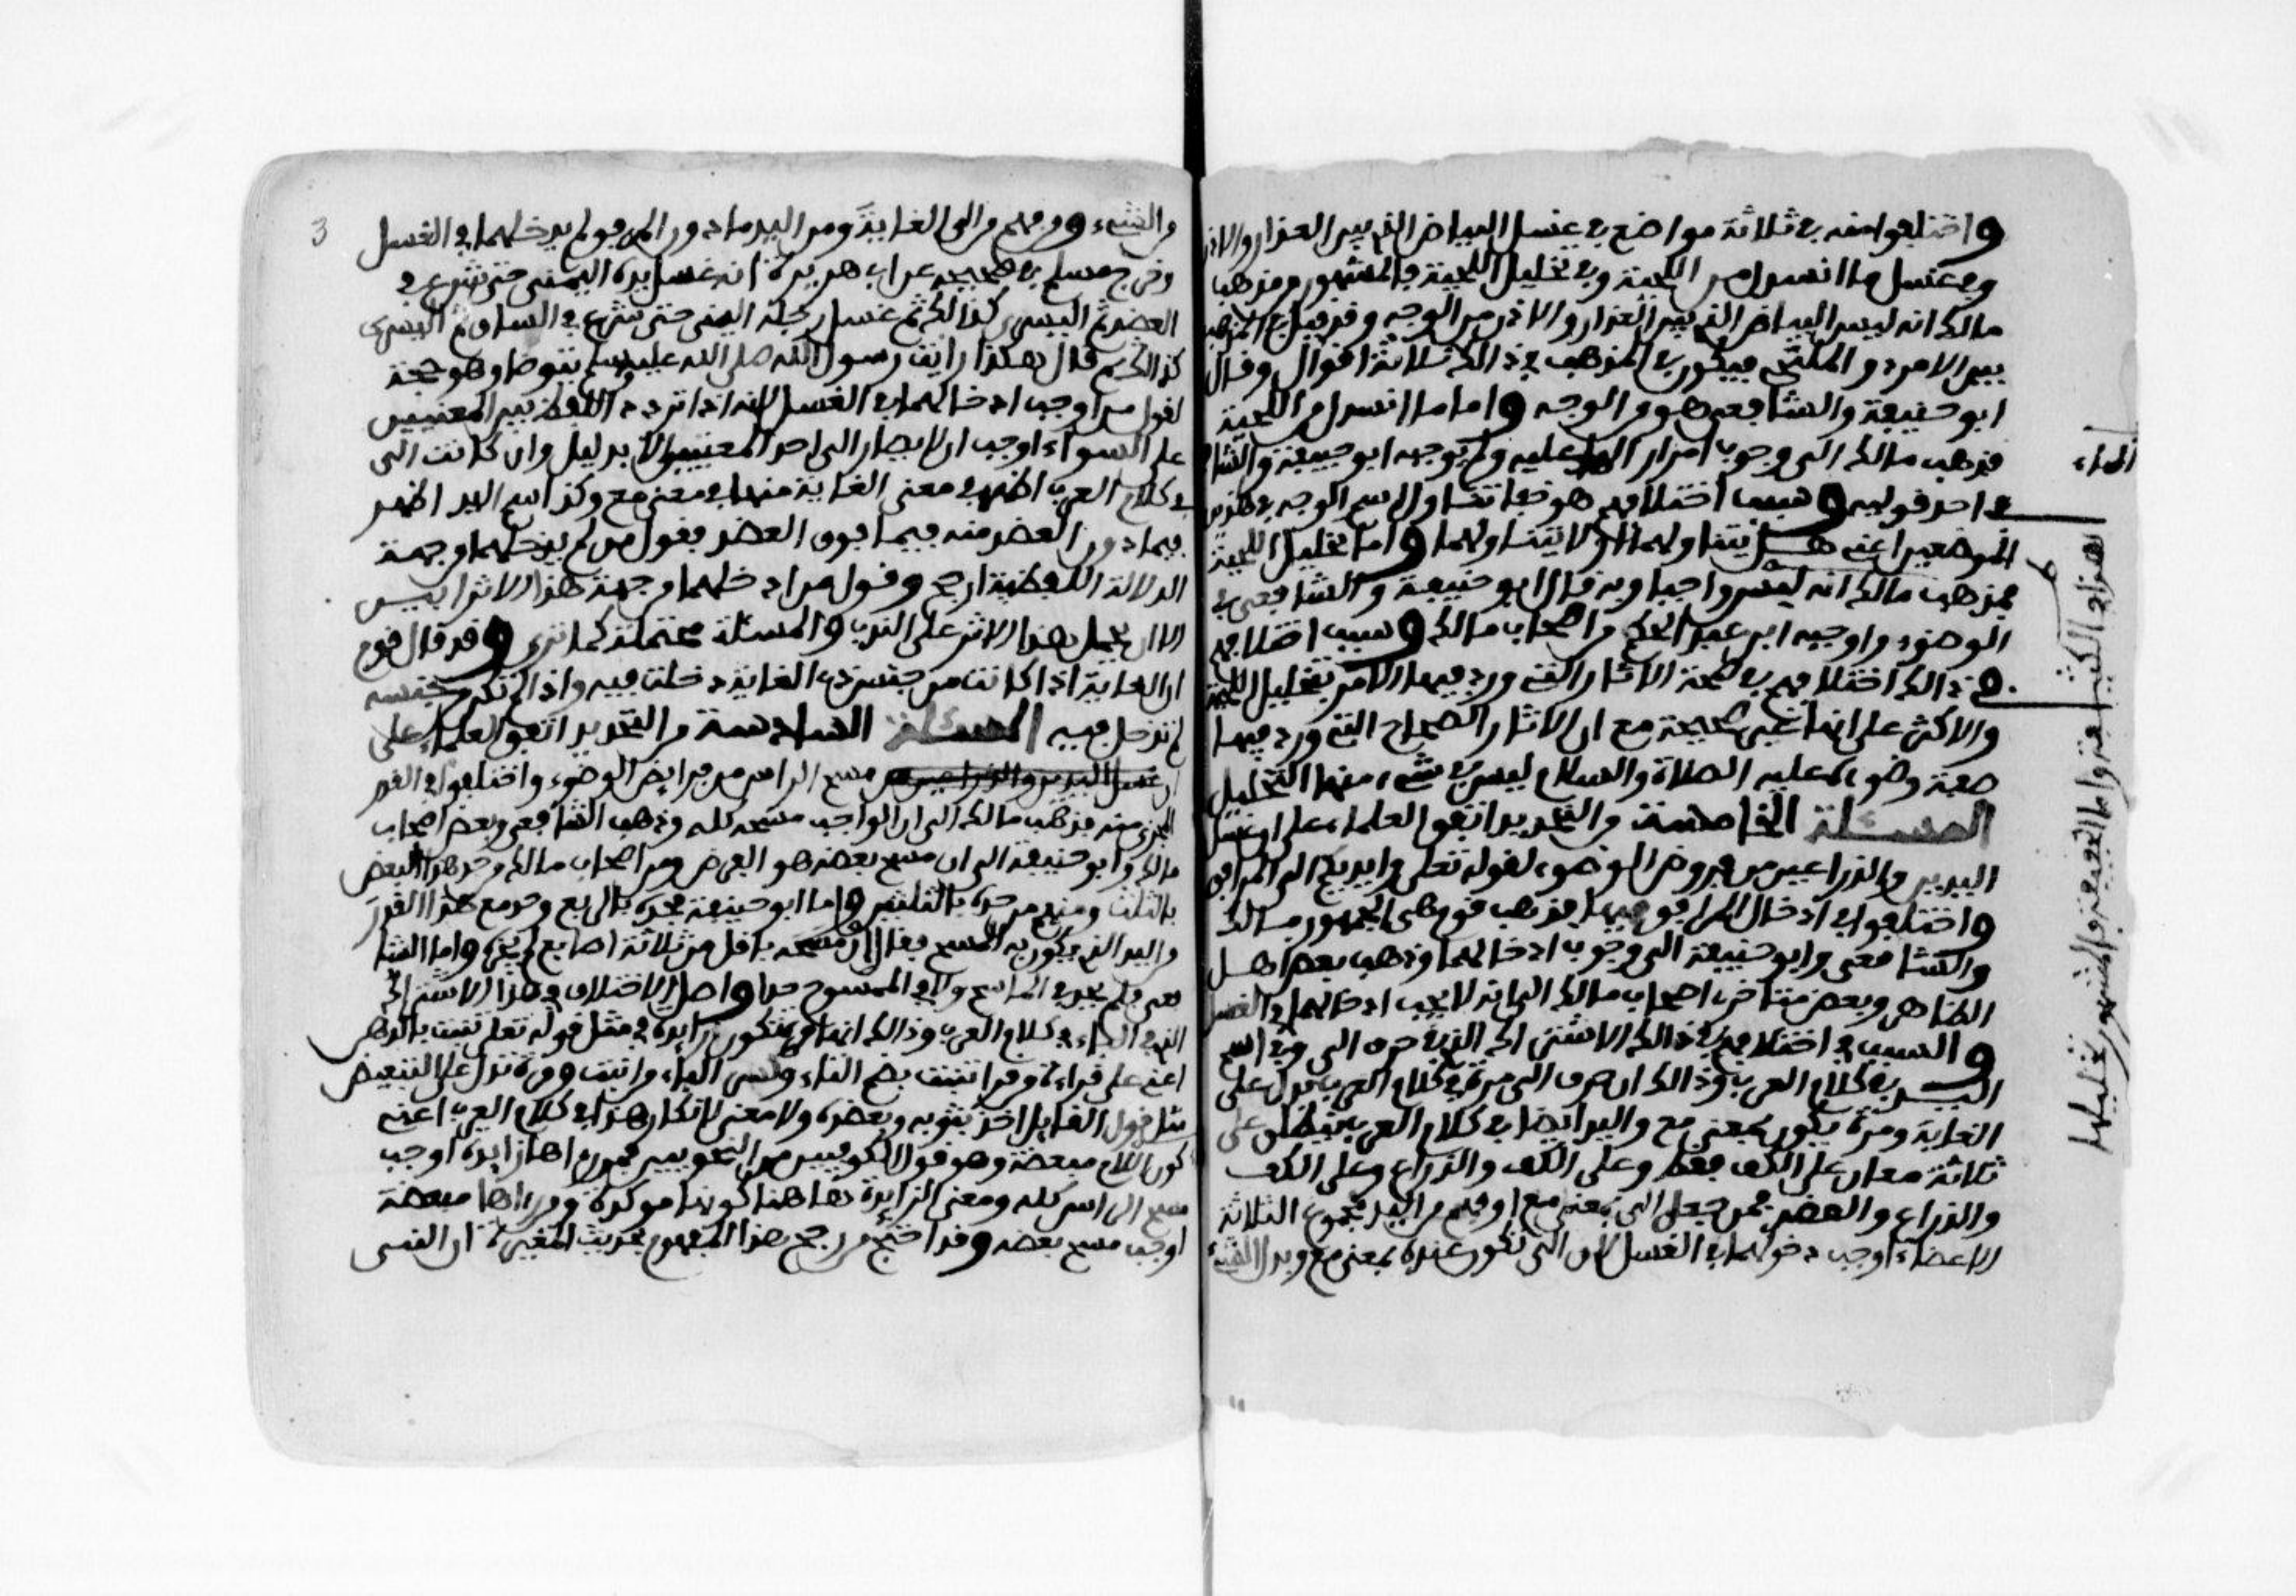 واختلفوا منه في ثلاثة مواضع في غسل البياض الذي بين العذار والاذن
وفي غسل ما انسدل من اللحية وفي تخليل اللحية فالمشهور من مذهب
مالك انه ليس البياض الذي بين العذار والاذن من الوجه وقد قيل في المذهب
بين الامرد والملتحي فيكون في المذهب في ذالك ثلاثة اقوال وقال
ابو حنيفة والشافعي هو من الوجه واما ما انسدل من اللحية
فذهب مالك الى وجوب امرار الماء عليه ولم يوجبه ابو حنيفة والشا
في احد قوليه وسبب اختلافهم هو خفاء تناول اسم الوجه لهذين
الموضعين اعني هل يتناولهما او لا يتناولهما واما تخليل اللحية
فمذهب مالك انه ليس واجبا وبه قال ابو حنيفة والشافعي في
الوضوء واوجبه ابن عبد الحكم من اصحاب مالك وسبب اختلافهم
في ذالك اختلافهم في صحة الاثار التي ورد فيها الامر بتخليل اللحية
والاكثر على انها غير صحيحة مع ان الاثار الصحاح التي ورد فيها
صفة وضوءه عليه الصلاة والسلام ليس في شيء منها التخليل
المسئلة الخامسة من التحديد اتفق العلماء على ان غسل
اليدين والذراعين من فروض الوضوء لقوله تعلى وايديكم الى المرافق
واختلفوا في ادخال المرافق فيها فذهب قوم هي الجمهور مالك
والشافعي وابو حنيفة الى وجوب ادخالهما وذهب بعض اهل
الظاهر وبعض متاخري اصحاب مالك الى انه لا يجب ادخالهما في الغسل
والسبب في اختلافهم في ذالك الاشتراك الذي في حرف الى وفي اسم
اليد في كلام العرب وذالك ان حرف الى مرة في كلام العرب يدل على
الغاية ومرة يكون بمعنى مع واليد ايضا في كلام العرب تنطلق على
ثلاثة معان على الكف فقط وعلى الكف والذراع وعلى الكف
والذراع والعضد فمن جعل الى بمعنى مع او فهم من اليد مجموع الثلاثة
الاعضاء اوجب دخولهما في الغسل لان الى تكون عنده بمعنى مع وبدا الشيء
الماء
من الشيء ومن فهم من الى الغاية ومن اليد ما دون المرفق لم يدخلهما في الغسل
وخرج مسلم في صحيحه عن ابي هريرة انه غسل يده اليمنى حتى شرع في
العضد ثم اليسرى كذالك ثم غسل رجله اليمنى حتى شرع في الساق ثم اليسرى
كذالك ثم قال هكذا رايت رسول الله صلى الله عليه وسلم يتوضا وهو حجة
لقول من اوجب ادخالهما في الغسل لانه اذا تردد اللفظ بين المعنيين
على السواء اوجب ان لا يصار الى احد المعنيين الا بدليل وان كانت الى
في كلام العرب اظهر في معنى الغاية منها في معنى مع وكذا اسم اليد اظهر
فيما دون العضد منه فيما فوق العضد فقول من لم يدخلهما من جهة
الدلالة اللفظية ارجح وقول من ادخلهما من جهة هذا الاثر ابين
الا ان يحمل هذا الاثر على الندب والمسئلة محتملة كما ترى وقد قال قوم
ان الغاية اذا كانت من جنس ذي الغاية دخلت فيه واذا لم تكن من جنسه
لم تدخل فيه المسئلة السادسة من التحديد اتفق العلماء على
ان غسل اليدين والذراعين من مسح الراس من فرايض الوضوء واختلفوا في القدر
المجزي منه فذهب مالك الى ان الواجب مسحه كله وذهب الشافعي وبعض اصحاب
مالك وابو حنيفة الى ان مسح بعضه هو الفرض ومن اصحاب مالك من حد هذا البعض
بالثلث ومنهم من حده بالثلثين واما ابو حنيفة فحده بالربع وحد مع هذا القدر
من اليد الذي يكون به المسح فقال ان مسحه باقل من ثلاثة اصابع لم يجزه واما الشا
فعي فلم يحد في الماسح ولا في الممسوح حدا واصل الاختلاف في هذا الاشتراك
الذي في الباء في كلام العرب وذالك انها مرة تكون زايدة في مثل قوله تعلى تنبت بالدهن
اعني على قراءة من قرا تنبت بضم التاء وكسر الباء من انبت ومرة تدل على التبعيض
مثل قول القايل اخذ بثوبه وبعضده ولا معنى لانكار هذا في كلام العرب اعني
كون الباء مبعضة وهو قول الكوفيين من النحويين فمن راها زايدة اوجب
مسح الراس كله ومعنى الزايدة هاهنا كونها موكدة ومن راها مبعضة
اوجب مسح بعضه وقد احتج من رجح هذا المفهوم بحديث المغيرة ان النبي
3